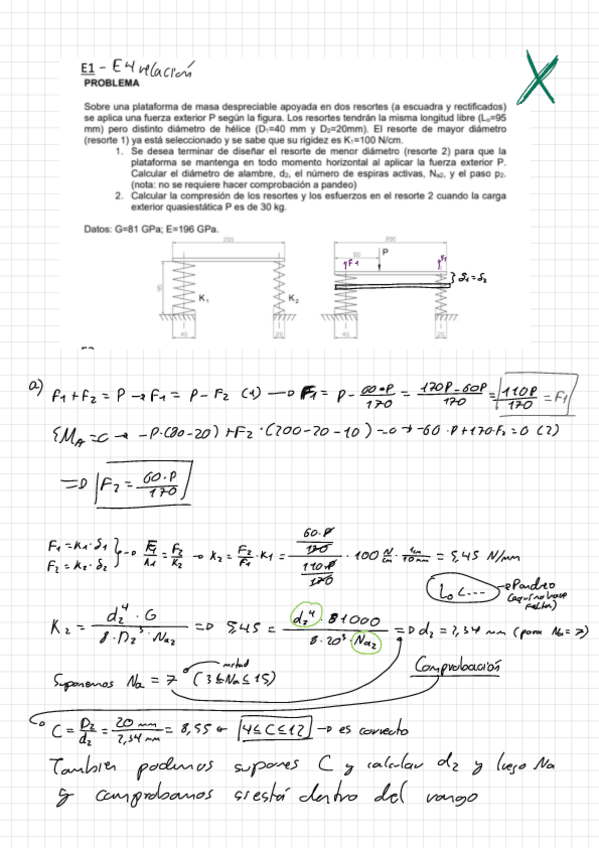 E1 - E4 relación
PROBLEMA
Sobre una plataforma de masa despreciable apoyada en dos resortes (a escuadra y rectificados)
se aplica una fuerza exterior P según la figura. Los resortes tendrán la misma longitud libre (L₀=95
mm) pero distinto diámetro de hélice (D₁=40 mm y D₂=20mm). El resorte de mayor diámetro
(resorte 1) ya está seleccionado y se sabe que su rigidez es K₁=100 N/cm.
1. Se desea terminar de diseñar el resorte de menor diámetro (resorte 2) para que la
plataforma se mantenga en todo momento horizontal al aplicar la fuerza exterior P.
Calcular el diámetro de alambre, d₂, el número de espiras activas, Nₐ₂, y el paso p₂.
(nota: no se requiere hacer comprobación a pandeo)
2. Calcular la compresión de los resortes y los esfuerzos en el resorte 2 cuando la carga
exterior quasiestática P es de 30 kg.
Datos: G=81 GPa; E=196 GPa.
200 200
80 P F1
δ1=δ2
95 K₁ K₂
40 20 40 20
a) F1+F2 = P → F1 = P - F2 (1) → F1 = P - 60·P/170 = 170P-60P/170 = 110P/170 = F1
ΣM_A = 0 → -P·(80-20)+F2·(200-20-10)=0 → -60·P+170·F2=0 (2)
⇒ F2 = 60·P/170
F1 = K1·δ1
F2 = K2·δ2 } → F1/K1 = F2/K2 → K2 = F2/F1·K1 = (60·P/170)/(110·P/170) · 100 N/cm · 1cm/10mm = 5,45 N/mm
L0 < ... → Pandeo
K2 = d2⁴·G/8·D2³·Na2 ⇒ 5,45 = d2⁴·81000/8·20³·Na2 ⇒ d2 = 2,34 mm (para Na=7)
Comprobación
Suponemos Na = 7 mitad (3≤Na≤15)
C = D2/d2 = 20 mm/2,34 mm = 8,55 ← 4≤C≤12 → es correcto
Tambien podemos suponer C y calcular d2 y luego Na
y comprobamos si está dentro del rango